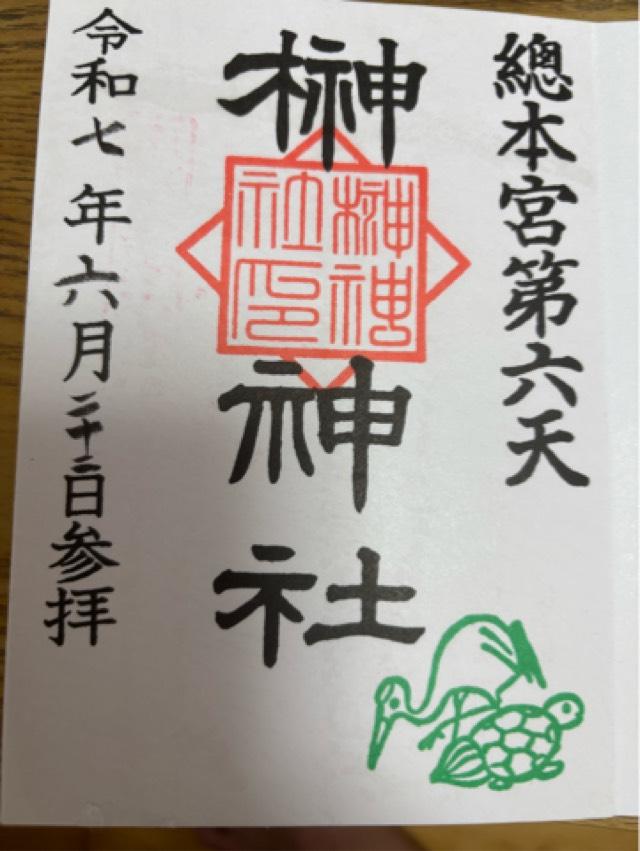 總本宮第六天
榊神社
榊神社印
令和七年六月二十二日参拝